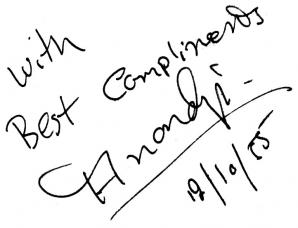 With
Best Compliments
Anandji
19/10/55